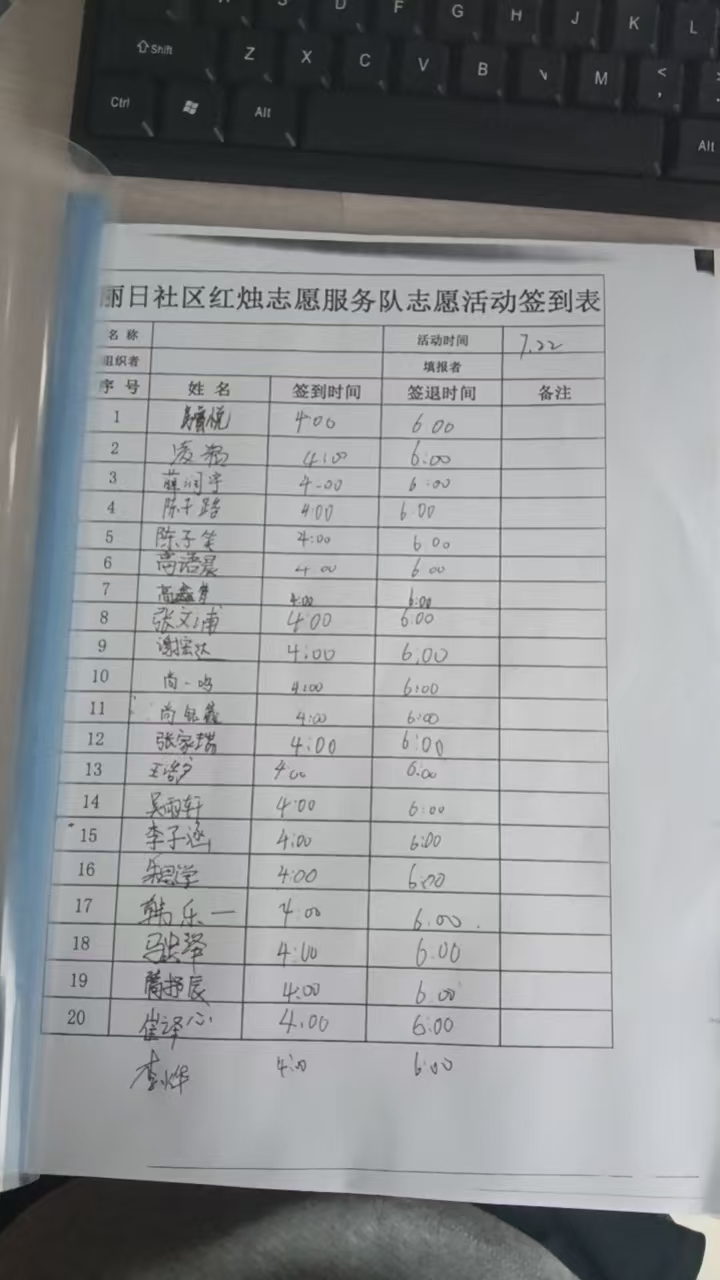 Shift Z X C V B N M < ,
Ctrl Alt Alt
D F G H J K L
丽日社区红烛志愿服务队志愿活动签到表
名称 活动时间 7.22
组织者 填报者
序号 姓名 签到时间 签退时间 备注
1 4:00 6:00
2 凌 4:00 6:00
3 薛润宇 4:00 6:00
4 陈子路 4:00 6:00
5 陈子笑 4:00 6:00
6 高语晨 4:00 6:00
7 高鑫 4:00 6:00
8 张文浦 4:00 6:00
9 谢宏达 4:00 6:00
10 尚一鸣 4:00 6:00
11 尚 4:00 6:00
12 张家瑞 4:00 6:00
13 王 4:00 6:00
14 吴雨轩 4:00 6:00
15 李子涵 4:00 6:00
16 4:00 6:00
17 韩乐一 4:00 6:00
18 马 泽 4:00 6:00
19 辰 4:00 6:00
20 崔译心 4:00 6:00
李烨 4:00 6:00